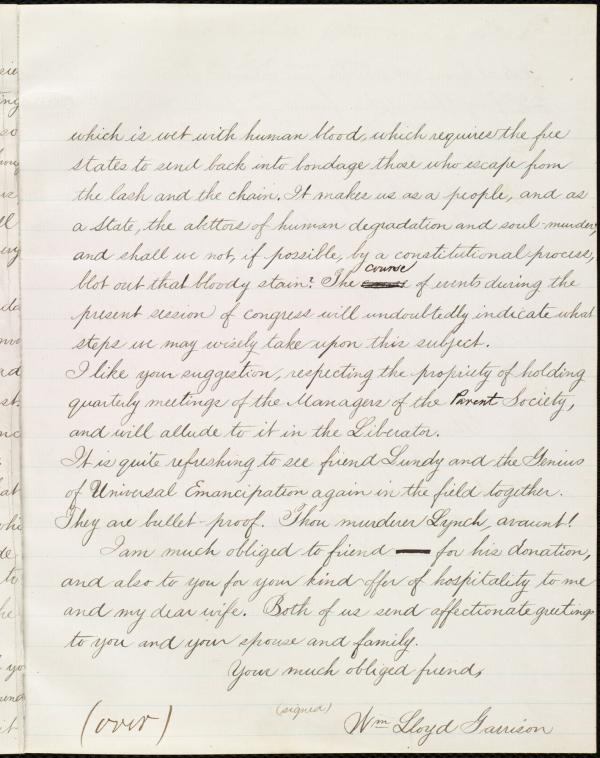 which is wet with human blood, which requires the free
states to send back into bondage those who escape from
the lash and the chain. It makes us as a people, and as
a State, the abettors of human degradation and soul-murder,
and shall we not, if possible, by a constitutional process,
blot out that bloody stain? The course of events during the
present session of congress will undoubtedly indicate what
steps we may wisely take upon this subject.
I like your suggestion, respecting the propriety of holding
quarterly meetings of the Managers of the Parent Society,
and will allude to it in the Liberator.
It is quite refreshing to see friend Lundy and the Genius
of Universal Emancipation again in the field together.
They are bullet-proof. Thou murderer Lynch, avaunt!
I am much obliged to friend — for his donation,
and also to you for your kind offer of hospitality to me
and my dear wife. Both of us send affectionate greetings
to you and your spouse and family.
Your much obliged friend,
(signed)
(over) Wm Lloyd Garrison